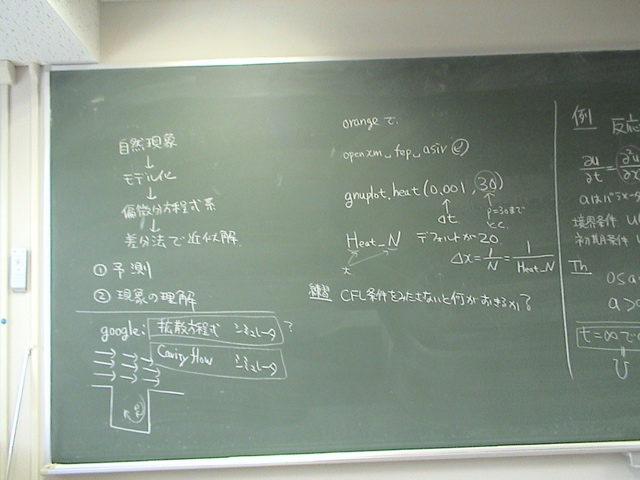 自然現象
↓
モデル化
↓
偏微分方程式系
↓
差分法で近似解.
① 予測
② 現象の理解
google: 拡散方程式 シミュレータ ?
Cavity flow シミュレータ
orange で.
openxm␣fep␣asir
gnuplot.heat(0.001, 30)
↑
dt
Heat_N デフォルトが20.
Δx = 1/N = 1/Heat_N
練習 CFL条件をみたさないと何がおきるか?
例 反応
∂u/∂t =
aはパラメータ
境界条件 u
初期条件 u
Th
0≤a
a>
t=∞で